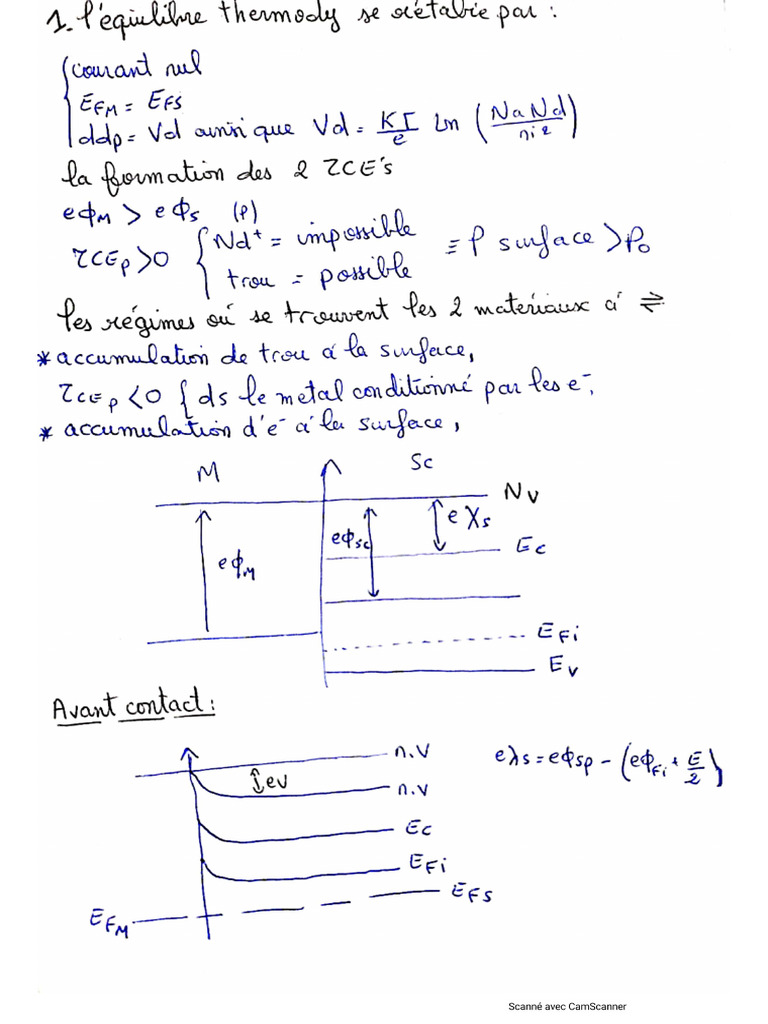 1. l'équilibre thermody se rétablie par :
courant nul
E_FM = E_FS
ddp = Vd ainsi que Vd = KT/e Ln (NaNd/ni²)
la formation des 2 ZCE's
eϕ_M > eϕ_S (P)
ZCE_P > 0 { Nd⁺ = impossible
trou = possible
≡ P surface > P₀
les régimes où se trouvent les 2 matériaux à ⇌
* accumulation de trou à la surface,
ZCE_P < 0 { ds le metal conditionné par les e⁻,
* accumulation d'e⁻ à la surface,
M Sc
N_V
eχ_s
eϕ_sc
E_c
eϕ_M
E_Fi
E_V
Avant contact :
n.V
eλs = eϕsp - (eϕ_Fi + E/2)
↕ev
n.V
E_C
E_Fi
E_FS
E_FM
Scanné avec CamScanner